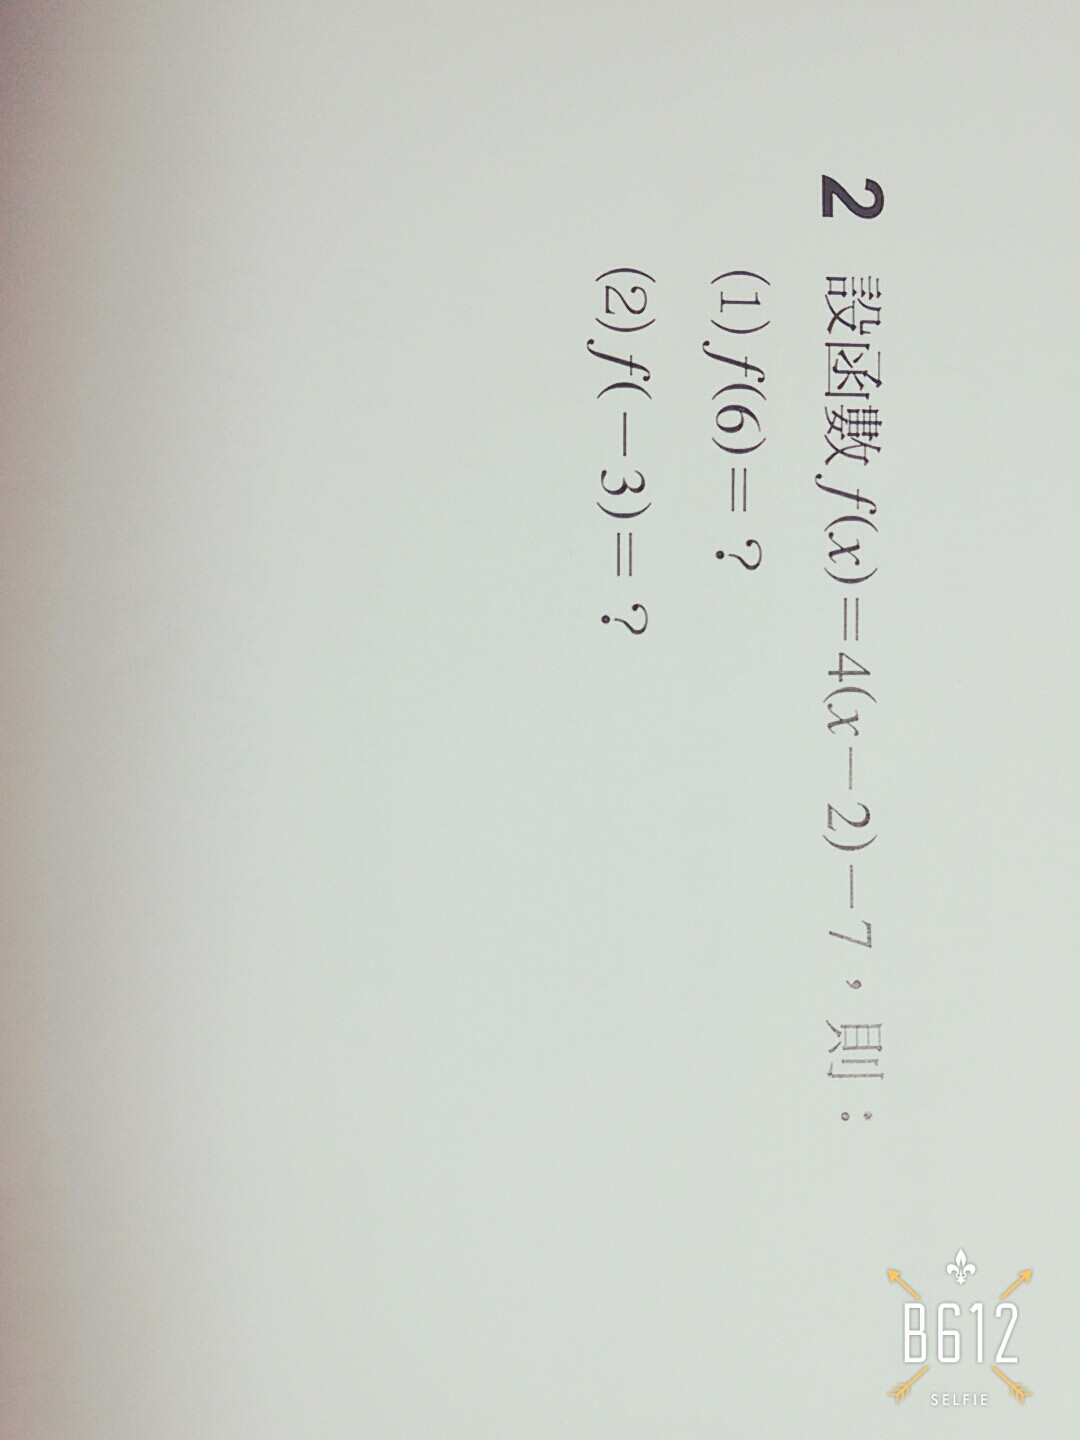 2 設函數 f(x)=4(x-2)-7，則：
(1) f(6)=？
(2) f(-3)=？
B612
SELFIE